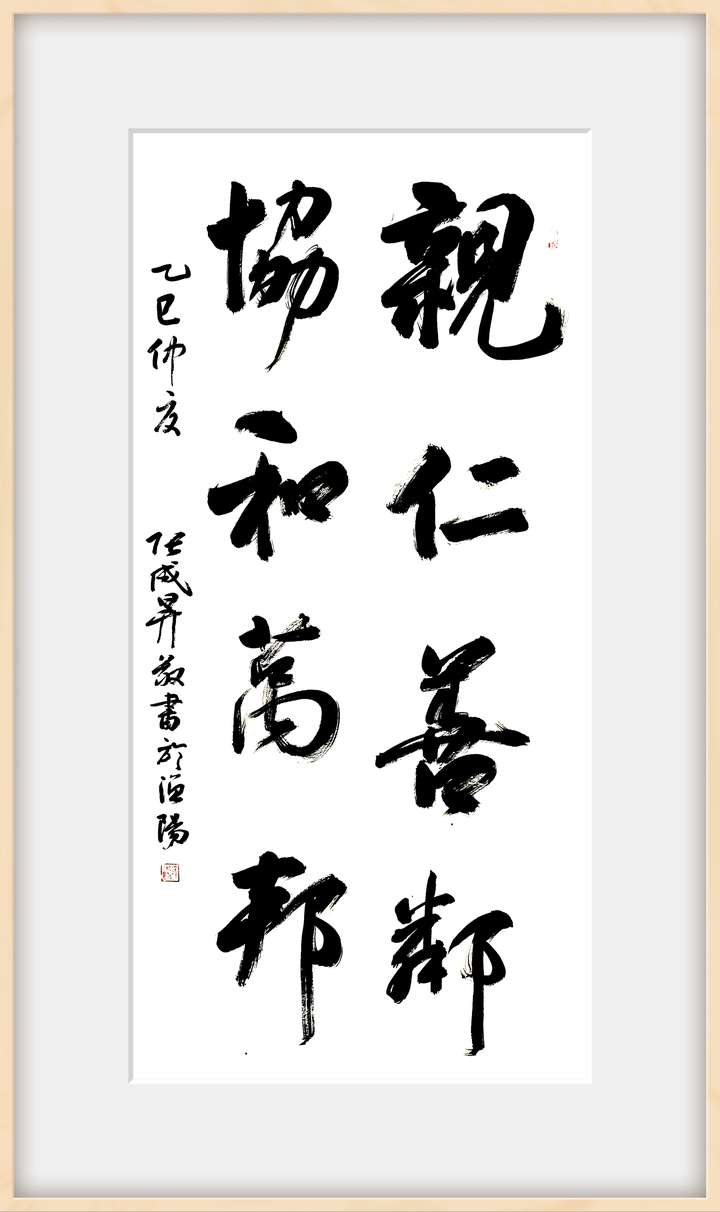 親仁善鄰
協和萬邦
乙巳仲夏
張成昇敬書於陽